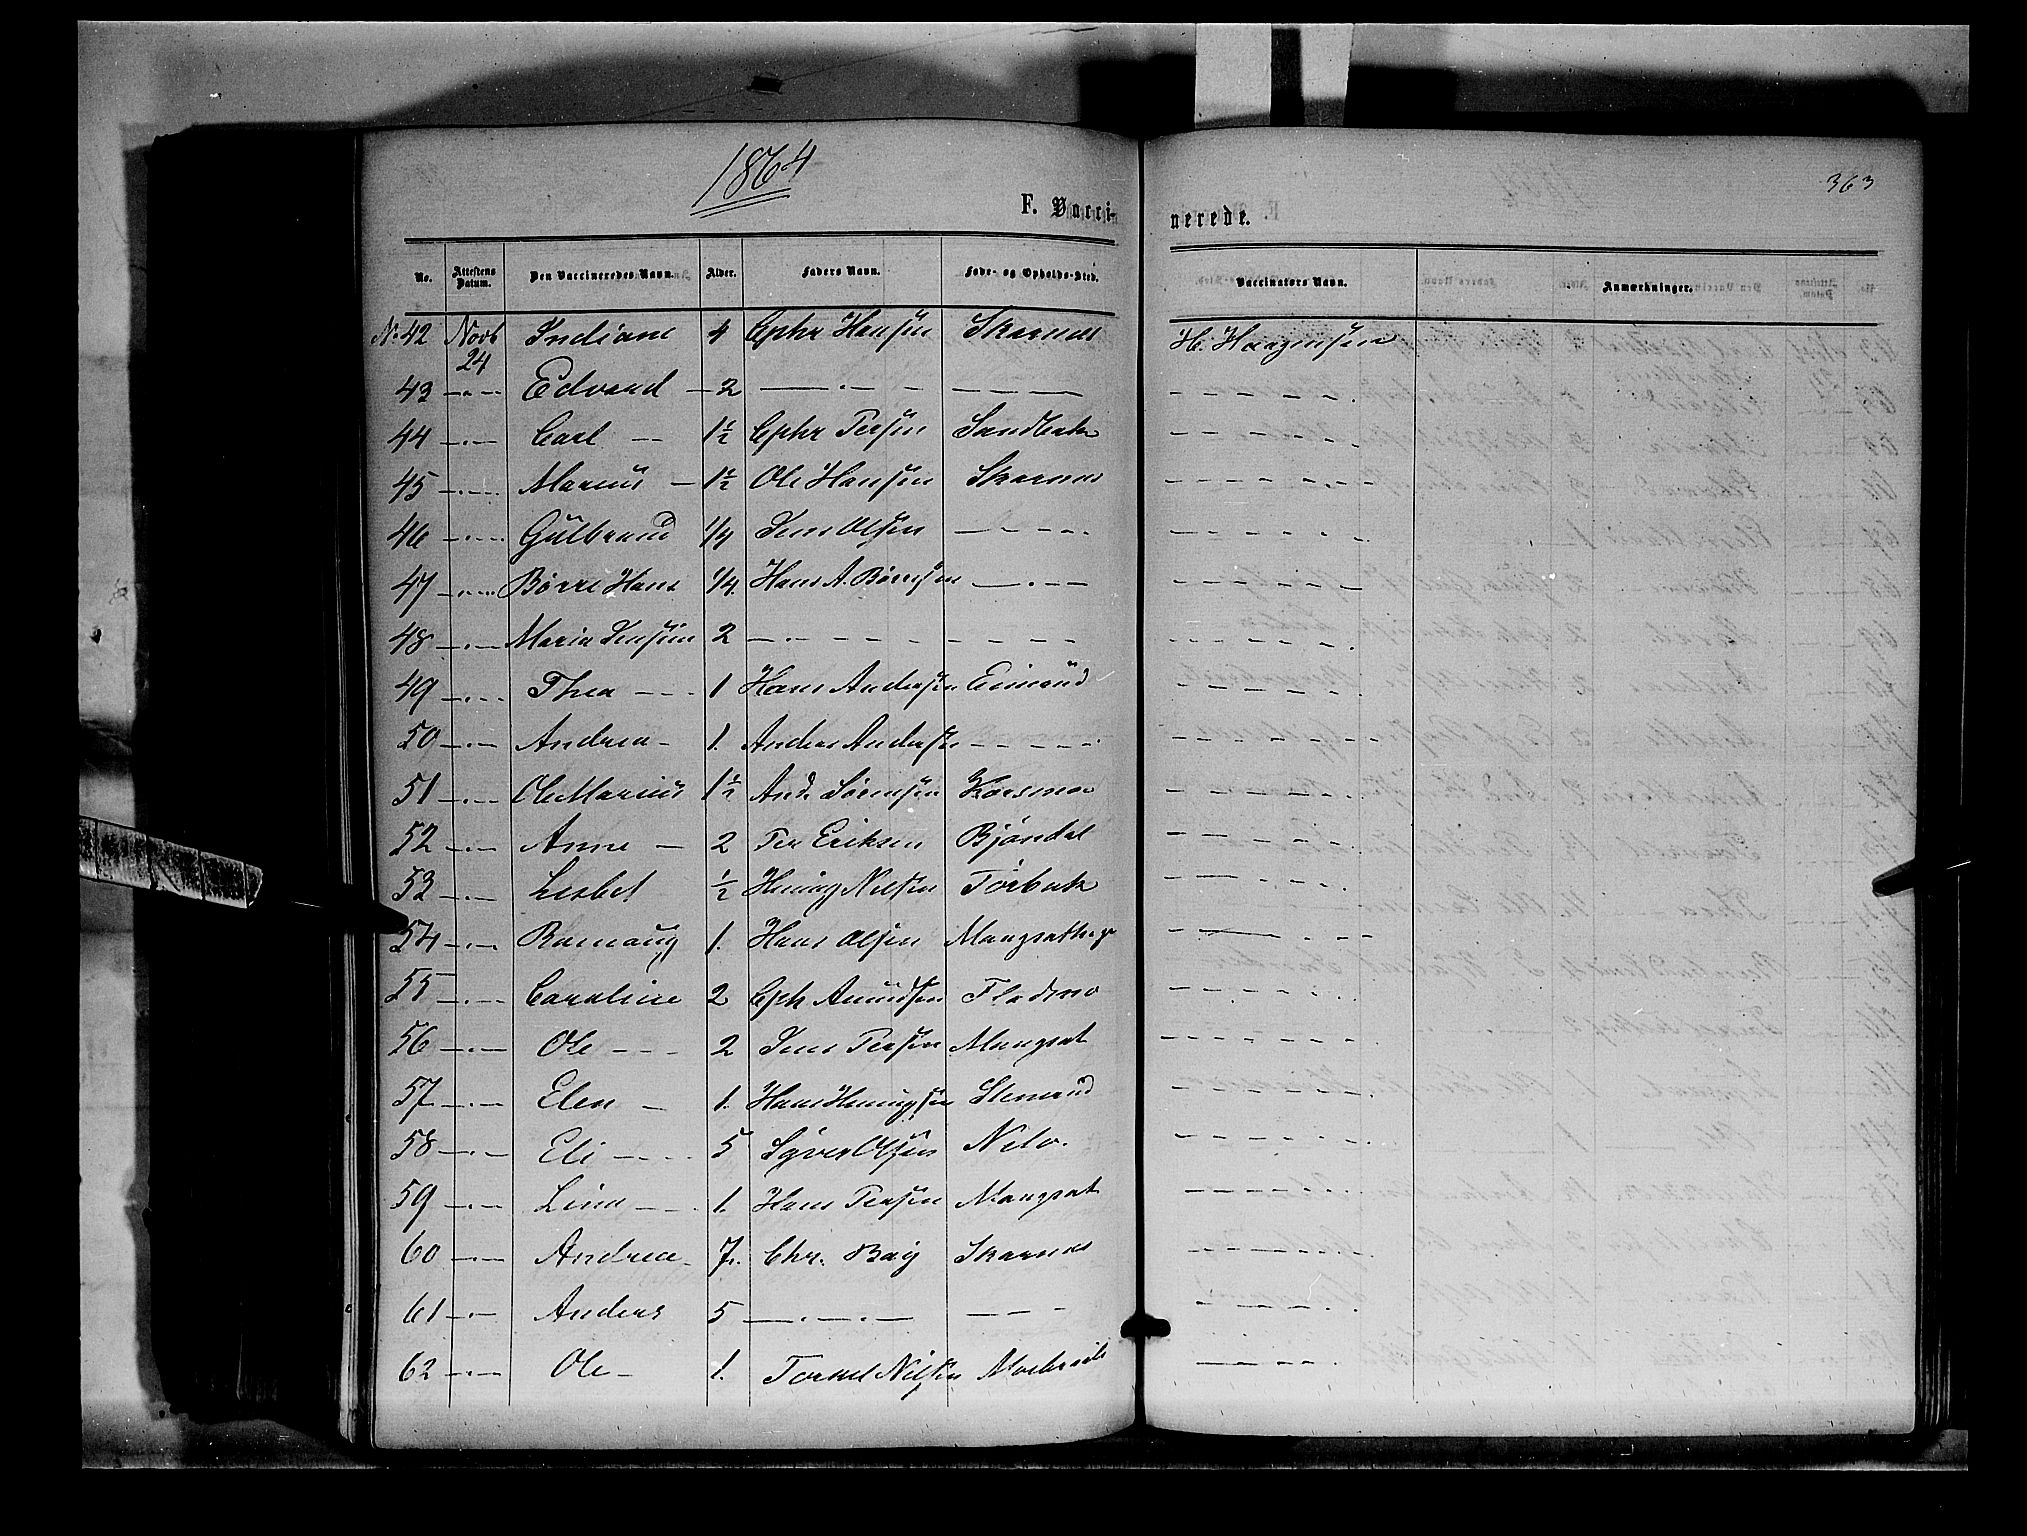 1864
363
F. Vacci-
nerede.
No. Attestens Datum. Den Vaccineredes Navn. Alder. Faders Navn. Føde- og Opholds-Sted. Vaccinators Navn. Anmærkninger.
No 42 Novb 24 Indiane 4 Cphr Hansen Skarnes H. Haagensen
43 — Edvard — 2 — — —
44 — Carl — 1½ Cphr Persen Sandbak —
45 — Marius — 1½ Ole Hansen Skarnes —
46 — Gulbrand 1/4 Jens Olsen — —
47 — Børre Hans 1/4. Hans A. Børresen — —
48 — Maria 2 — — —
49 — Thea — 1 Hans Andersen —
50 — Andrea — 1. Anders Andersen — —
51 — Ole Marius 1½ And. Sørensen Korsmo —
52 — Anne — 2 Per Eriksen Bjøndal —
53 — Lisbet ½ Hening Nilsen Torbak —
54 — 1. Hans Olsen —
55 — Caroline 2 Cph Amundsen Fladmo —
56 — Ole — 2 Jens Persen Mangsat —
57 — Elen — 1. Hans Heningsen —
58 — Eli — 5 Syver Olsen —
59 — Lina — 1. Hans Persen Mangsat —
60 — Andrea — 7. Chr. Skarnes —
61 — Anders 5 — — —
62 — Ole — 1. Nilsen —